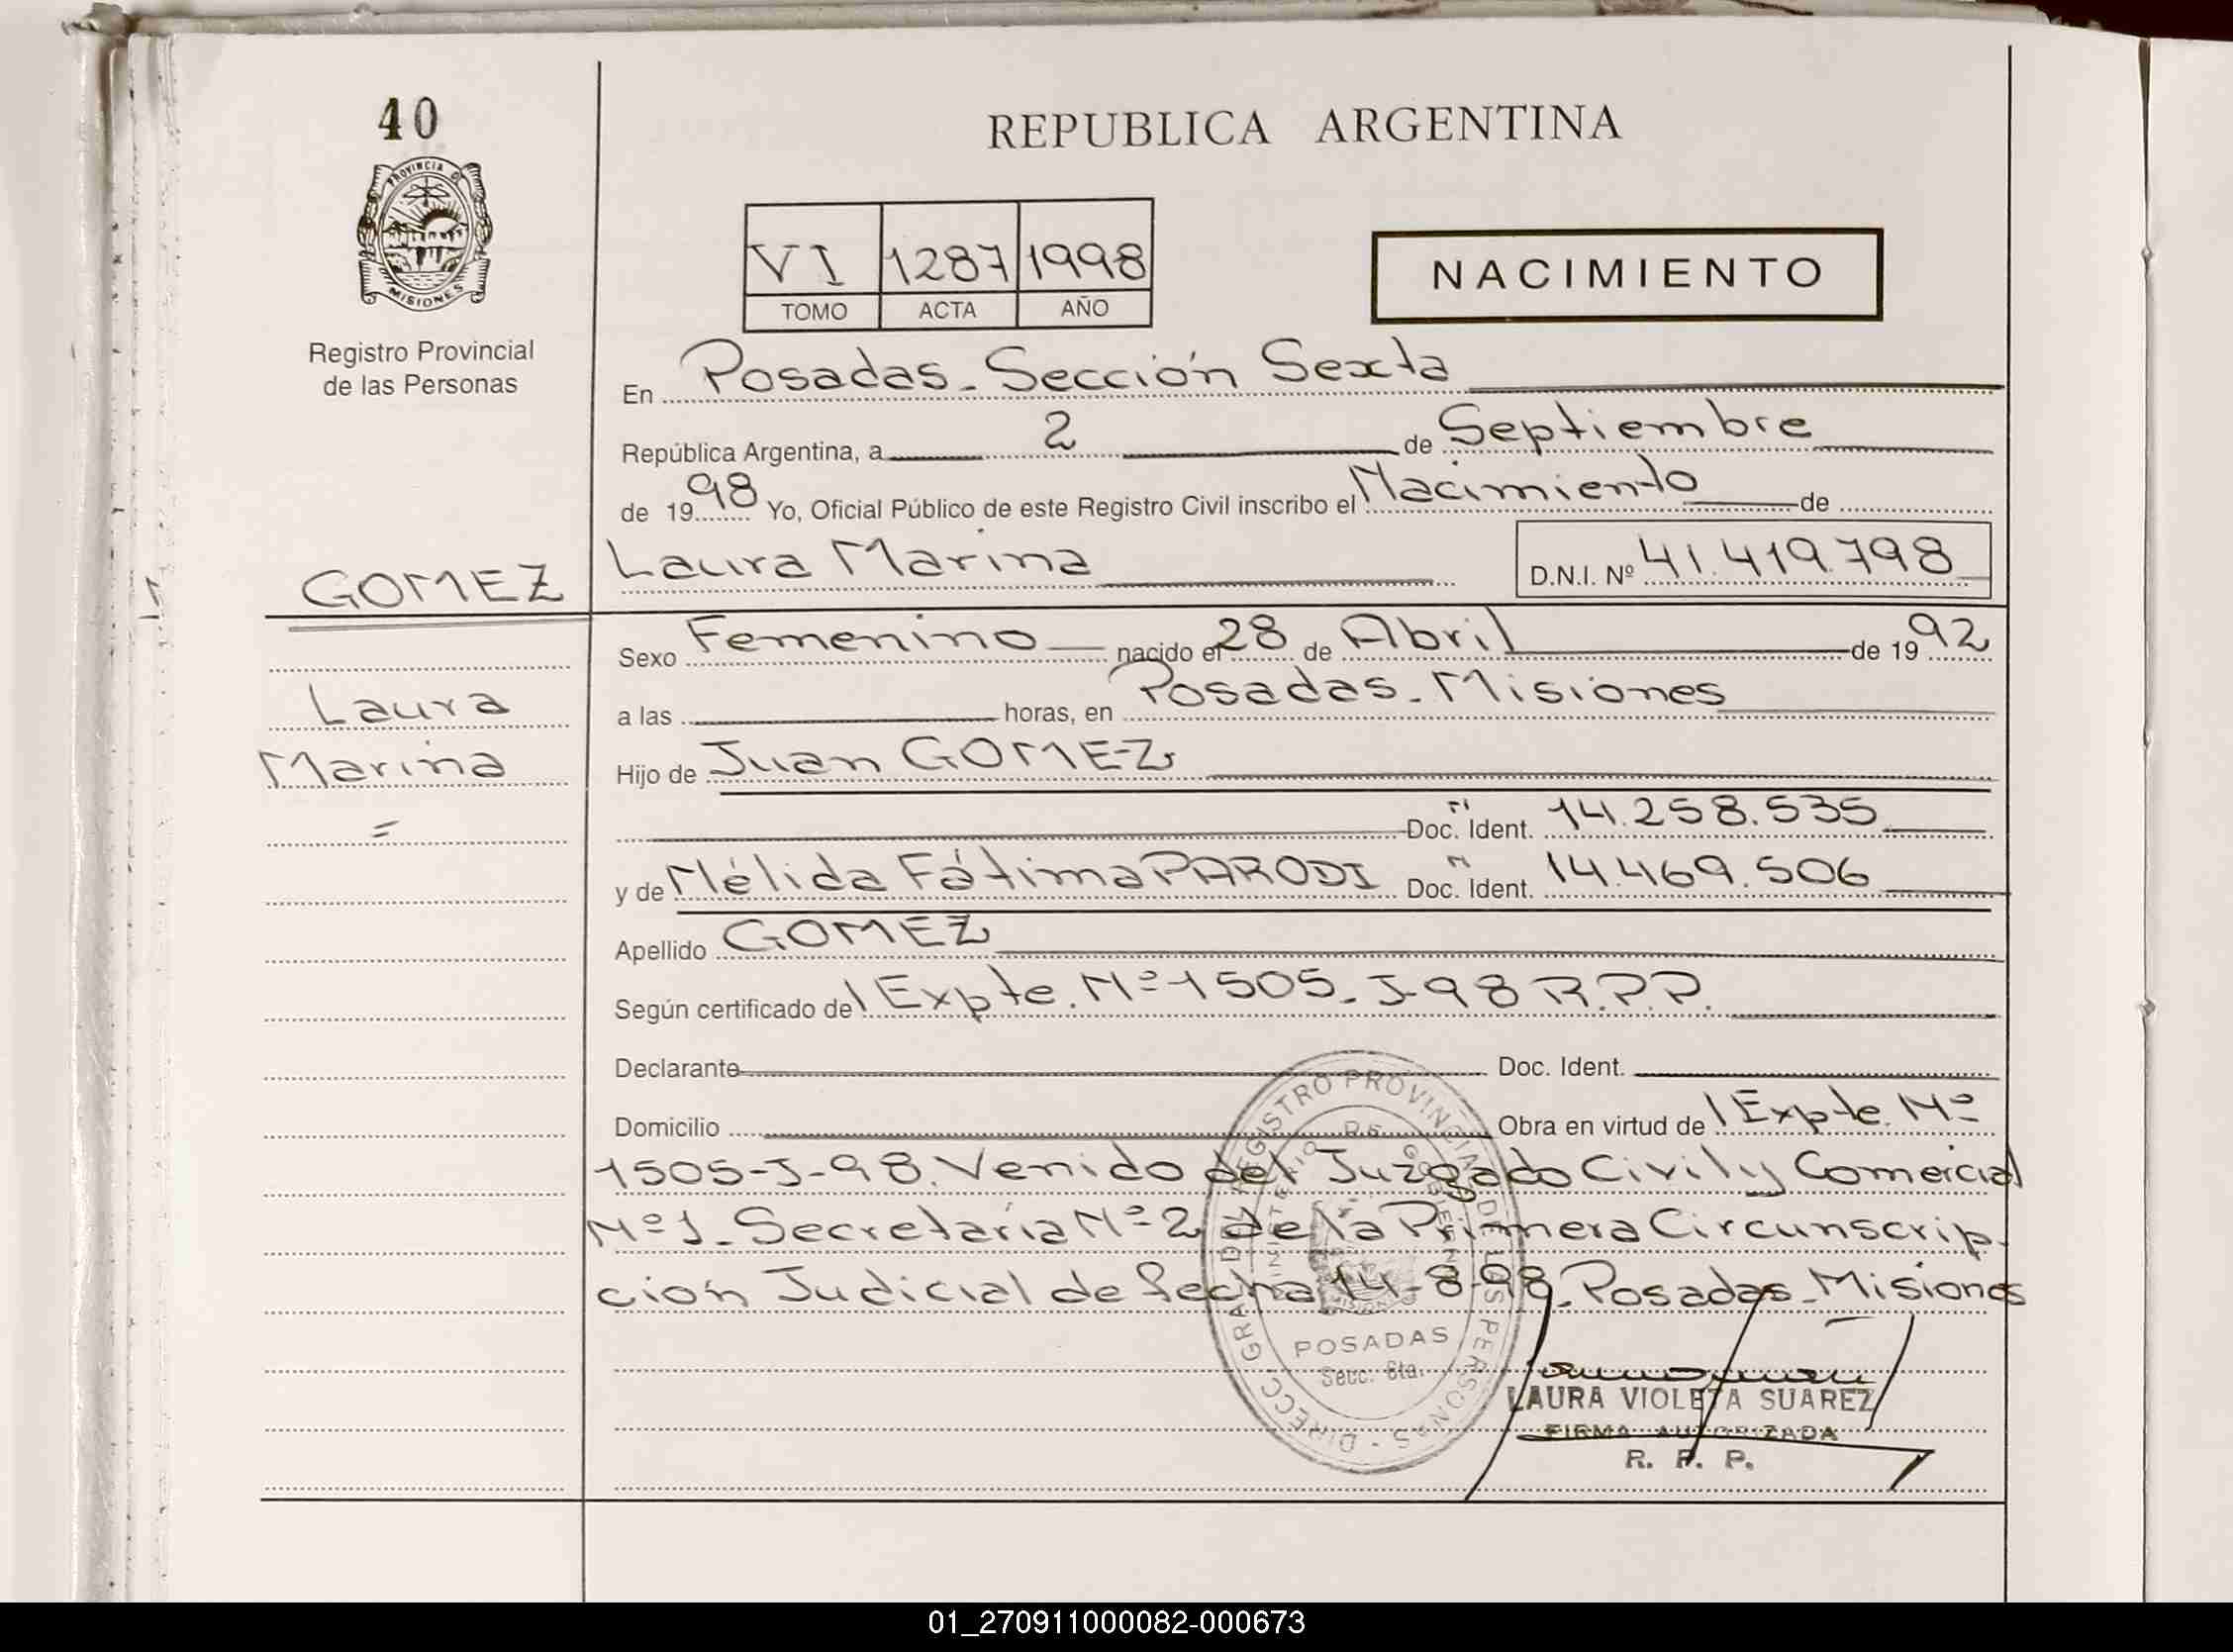 40
PROVINCIA DE
MISIONES
Registro Provincial
de las Personas
REPUBLICA ARGENTINA
VI 1287 1998
TOMO ACTA AÑO
NACIMIENTO
En Posadas - Sección Sexta
República Argentina, a 2 de Septiembre
de 1998 Yo, Oficial Público de este Registro Civil inscribo el Nacimiento de
GOMEZ Laura Marina D.N.I. Nº 41.419.798
Sexo Femenino nacido el 28 de Abril de 1992
Laura a las horas, en Posadas - Misiones
Marina Hijo de Juan GOMEZ
= Doc. Ident. 14.258.535
y de Nélida Fátima PARODI Doc. Ident. 14.469.506
Apellido GOMEZ
Según certificado del Expte. Nº 1505-J-98 R.P.P.
Declarante Doc. Ident.
Domicilio Obra en virtud del Expte. Nº
1505-J-98. Venido del Juzgado Civil y Comercial
Nº 1 - Secretaría Nº 2 de la Primera Circunscrip-
ción Judicial de fecha 14-8-98. Posadas - Misiones
DIRECC. GRAL. DEL REGISTRO PROVINCIAL DE LAS PERSONAS
MINISTERIO DE GOBIERNO
MISIONES
POSADAS
Secc. 6ta.
LAURA VIOLETA SUAREZ
FIRMA AUTORIZADA
R. P. P.
01_270911000082-000673